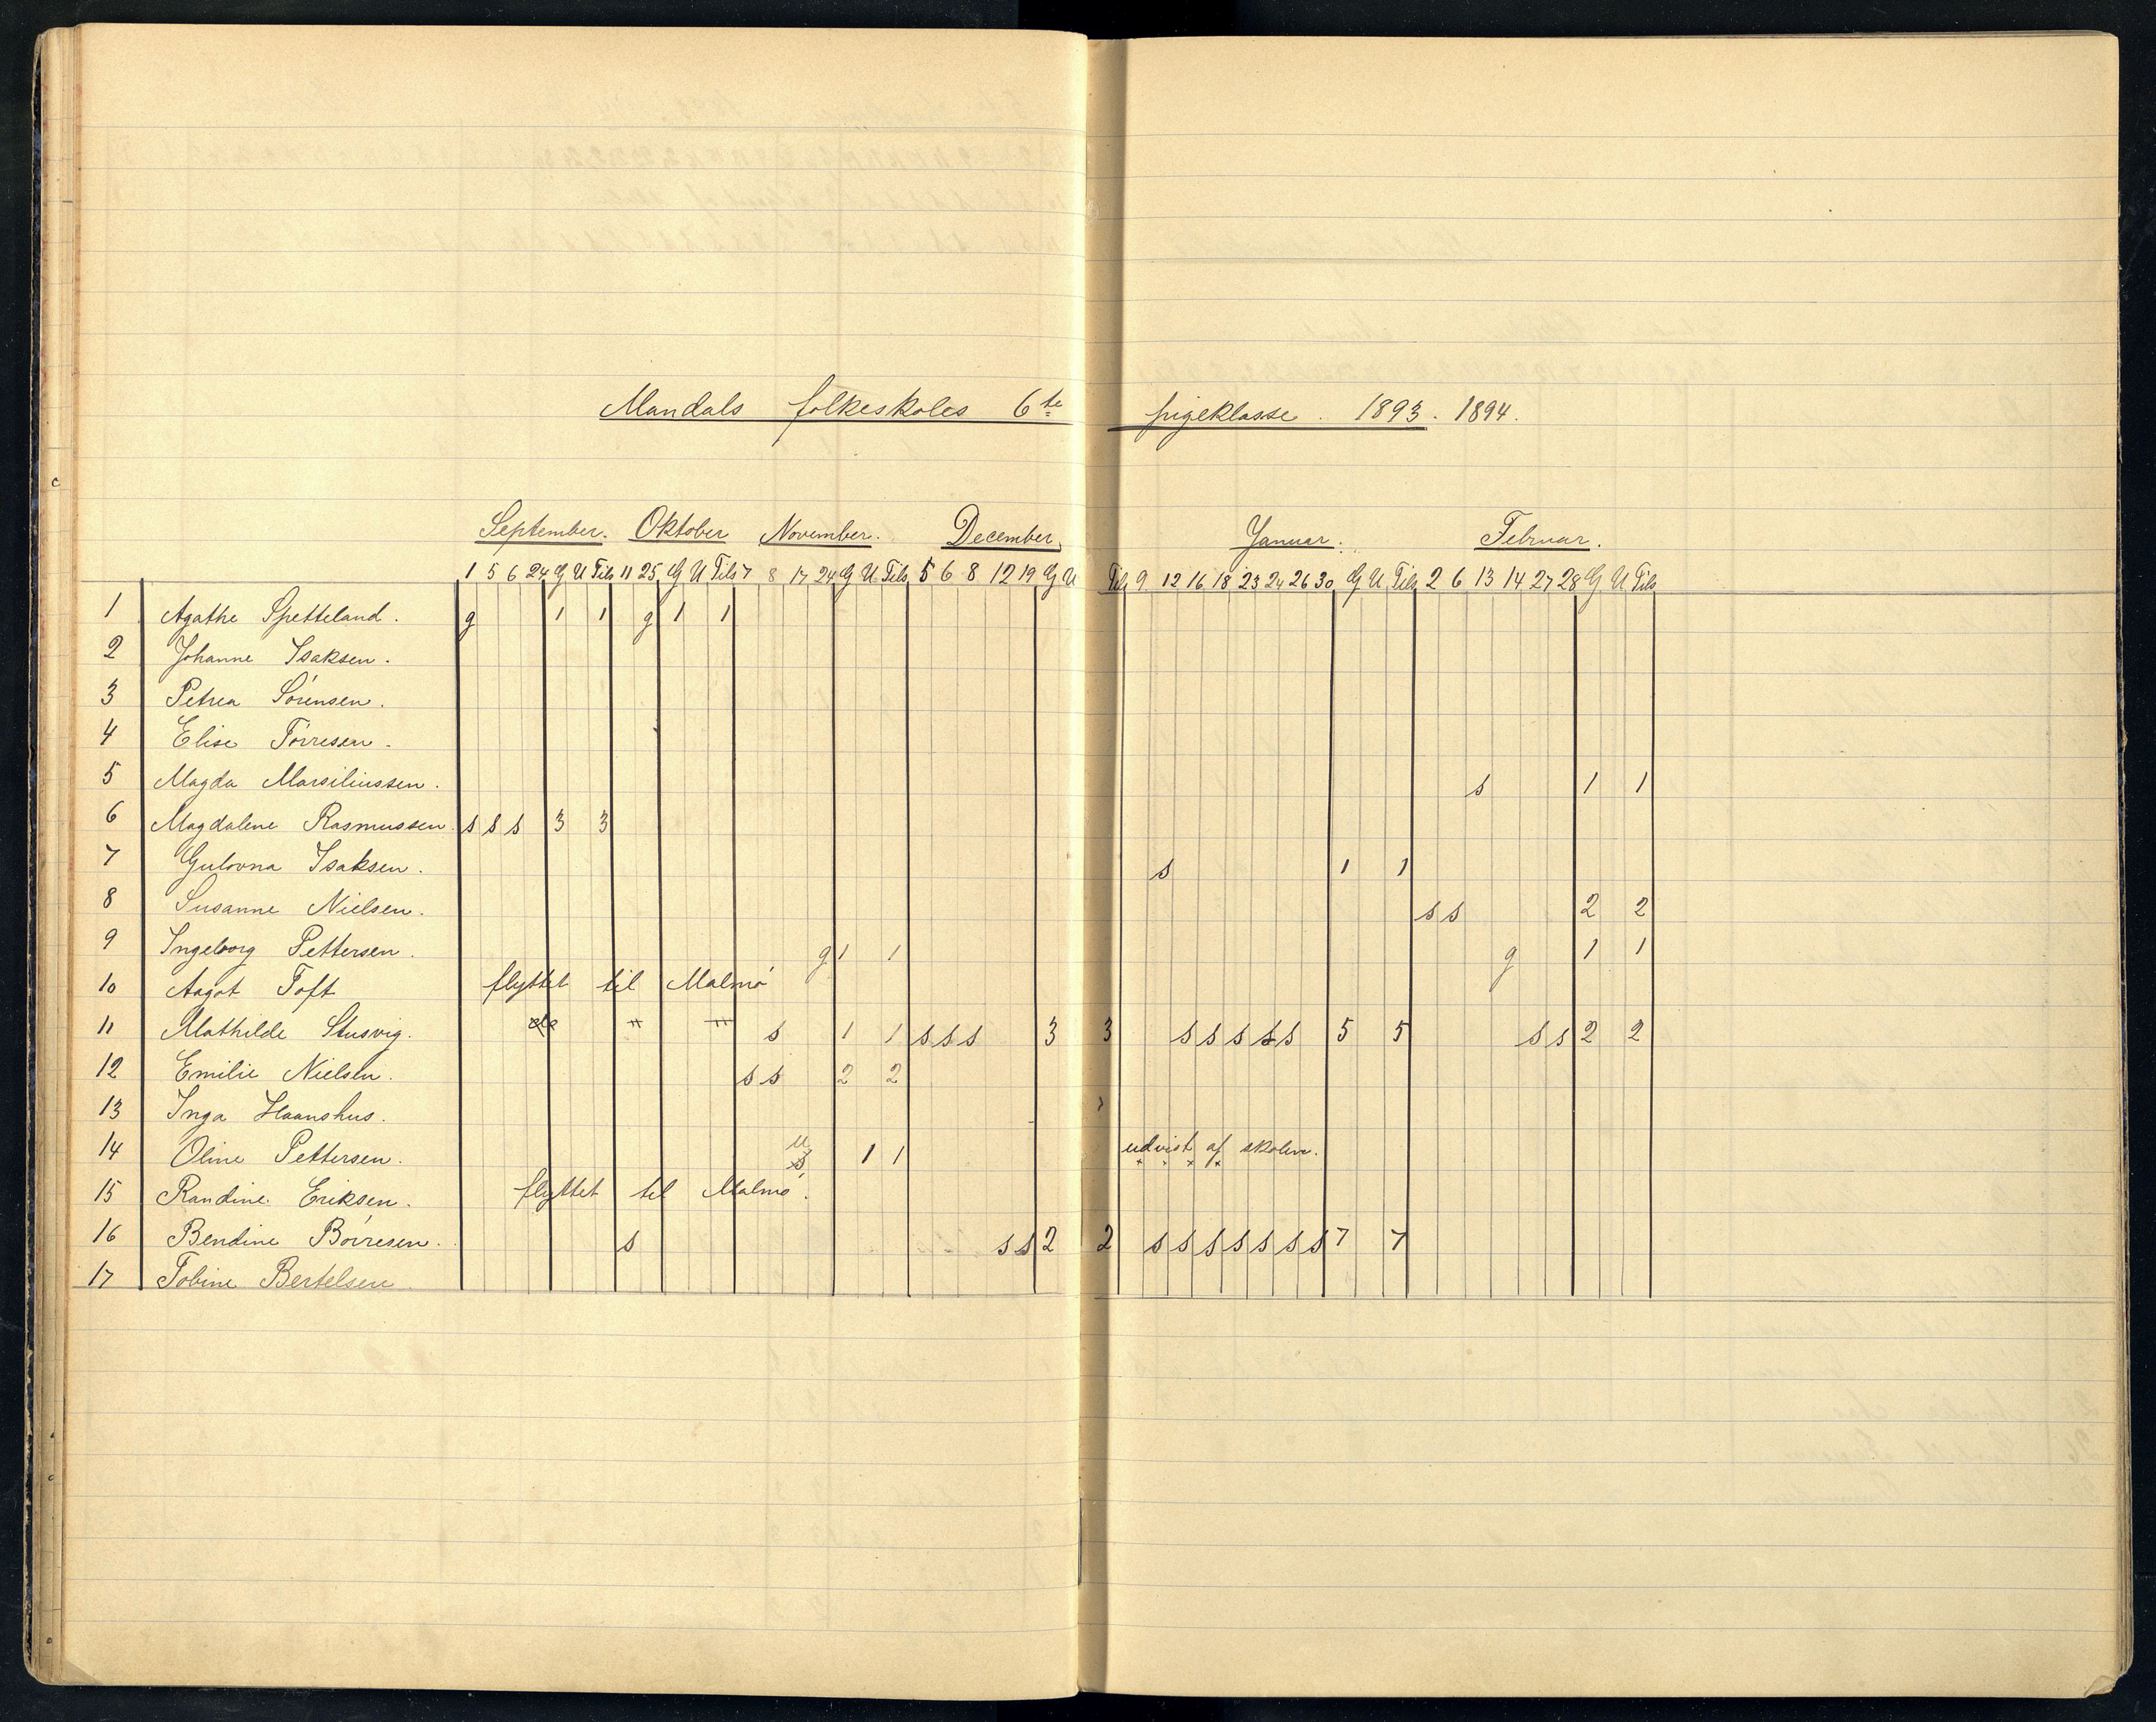 Mandals folkeskoles 6te pigeklasse. 1893. 1894.
September. Oktober November. December. Januar. Februar.
1 5 6 24 G U Tils 11 25 G U Tils 7 8 17 24 G U Tils 5 6 8 12 19 G U Tils 9 12 16 18 23 24 26 30 G U Tils 2 6 13 14 27 28 G U Tils
1 Agathe Spetteland. g 1 1 g 1 1
2 Johanne Isaksen.
3 Petrea Sörensen.
4 Elise Törresen.
5 Magda Marsiliussen. s 1 1
6 Magdalene Rasmussen. s s s 3 3
7 Gulovna Isaksen. s 1 1
8 Susanne Nielsen. s s 2 2
9 Ingeborg Pettersen. g 1 1 g 1 1
10 Aagot Toft flyttet til Malmö
11 Mathilde Stusvig. s 1 1 s s s 3 3 s s s s s 5 5 s s 2 2
12 Emilie Nielsen. s s 2 2
13 Inga Haanshus.
14 Oline Pettersen. u s 1 1 udvist af skolen.
15 Randine Eriksen. flyttet til Malmö.
16 Bendine Börresen. s s s 2 2 s s s s s s s 7 7
17 Tobine Bertelsen.